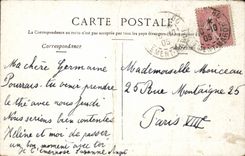 CARTE POSTALE
La Correspondance au recto n'est pas acceptée par tous les pays étrangers
Correspondance
Ma chère Germaine
Pourrais-tu venir prendre
le thé avec nous jeudi
Nous serions bien contentes
Hélène et moi de passer
un bon moment avec toi
Je t'embrasse Suzanne
Mademoiselle Monceau
25 Rue Montaigne 25
Paris VIIIe